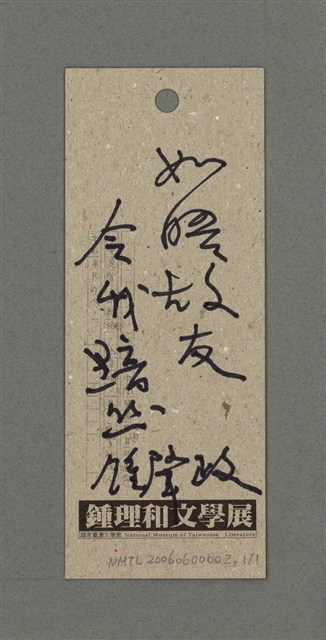 如晤故友
令我黯然
鍾肇政
鍾理和文學展
國立台灣文學館 National Museum of Taiwanese Literature
NMTL20060600002, 1/1